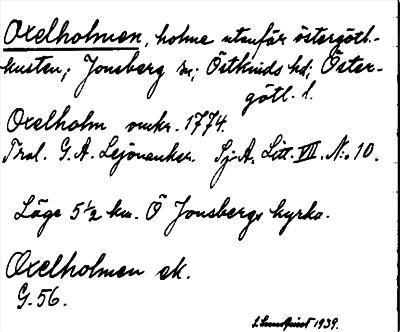 Oxelholmen, holme utanför östergöth.-
kusten; Jonsberg sn; Östkinds hd; Öster-
götl. l.
Oxelholm omkr. 1774.
G. A. Lejonanker. Sj. A. Litt. VII. No. 10.
Läge 5 1/2 km. Ö Jonsbergs kyrka.
Oxelholmen ek.
G. 56.
S. Lundquist 1939.